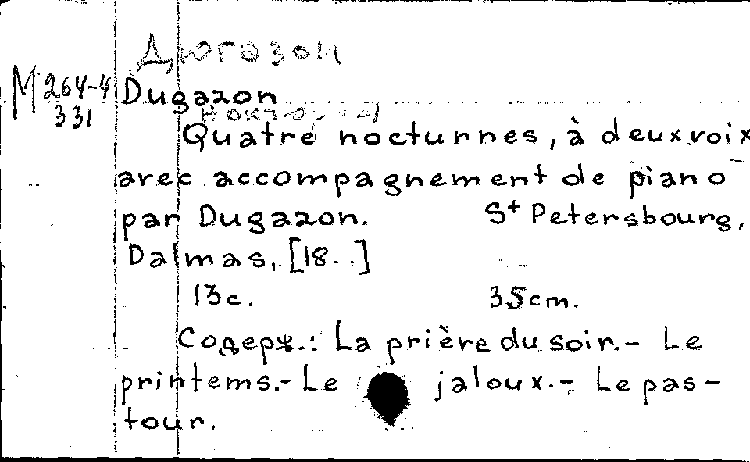 Дюгазон
М 264-4
331
Dugazon
Ноктюрны
Quatre nocturnes, à deux voix
avec accompagnement de piano
par Dugazon. St Petersbourg,
Dalmas, [18..]
13c. 35cm.
Содерж.: La prière du soir.- Le
printems.- Le jaloux.- Le pas-
tour.